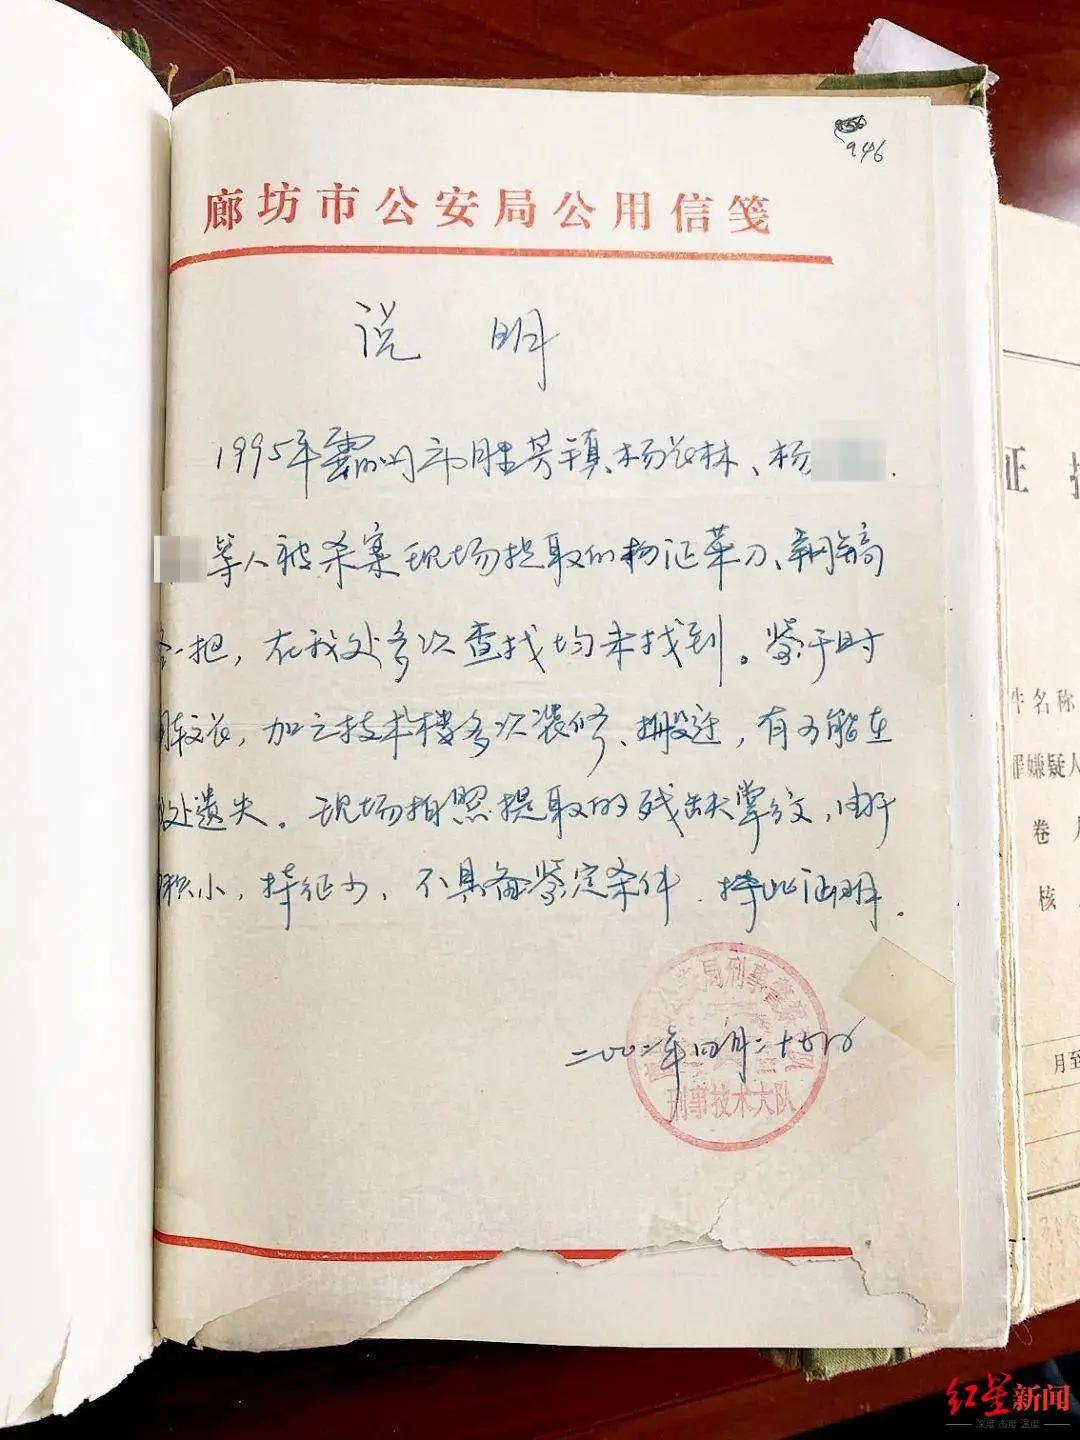 946
廊坊市公安局公用信笺
说 明
1995年霸州市胜芳镇杨兆林、杨
等人被杀案现场提取的物证菜刀、钢镐
各一把，在我处多次查找均未找到。鉴于时
间较长，加之技术楼多次装修、搬迁，有可能在
我处遗失。现场拍照提取的残缺掌纹，由于
面积小，特征少，不具备鉴定条件，特此证明。
二〇〇二年四月二十
公安局刑事警察
刑事技术大队
证
件名称
罪嫌疑人
卷
核
月至
红星新闻
深度 态度 温度